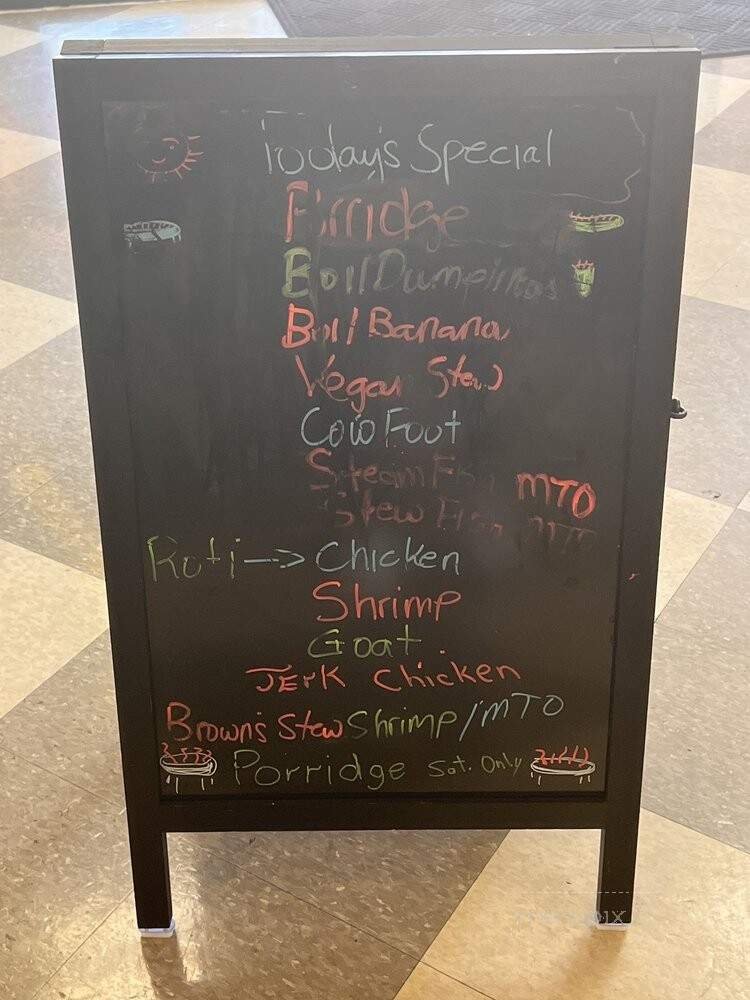 Today's Special
Porridge
Boil Dumplings
Boil Banana
Vegan Stew
Cow Foot
Steam Fish MTO
Stew Fish MTO
Roti --> Chicken
Shrimp
Goat
JErK Chicken
Brown's Stew Shrimp/MTO
Porridge Sat. Only